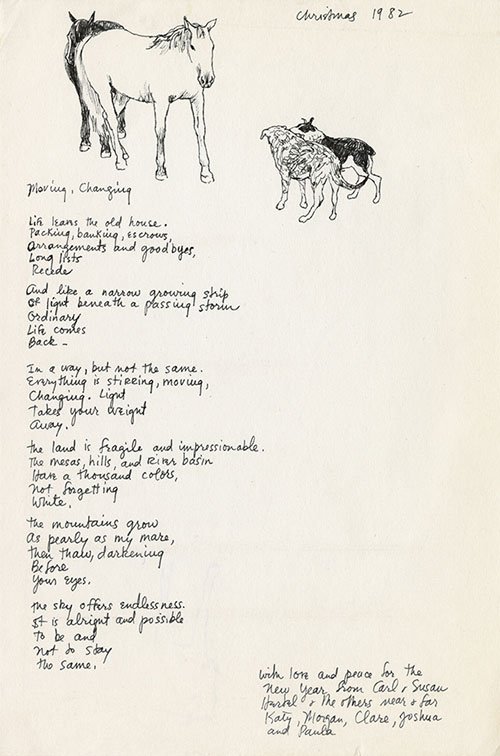 Christmas 1982
Moving, Changing
Life leaves the old house.
Packing, banking, escrows,
Arrangements and goodbyes,
Long lists
Recede
And like a narrow growing strip
Of light beneath a passing storm
Ordinary
Life comes
Back –
In a way, but not the same.
Everything is stirring, moving,
Changing. Light
Takes your weight
Away.
The land is fragile and impressionable.
The mesas, hills, and River basin
Have a thousand colors,
Not forgetting
White.
The mountains grow
As pearly as my mare,
Then thaw, darkening
Before
Your eyes.
The sky offers endlessness.
It is alright and possible
To be and
Not to stay
The same.
With love and peace for the
New Year from Carl & Susan
Hertel & the others near & far
Katy, Morgan, Clare, Joshua
and Paula